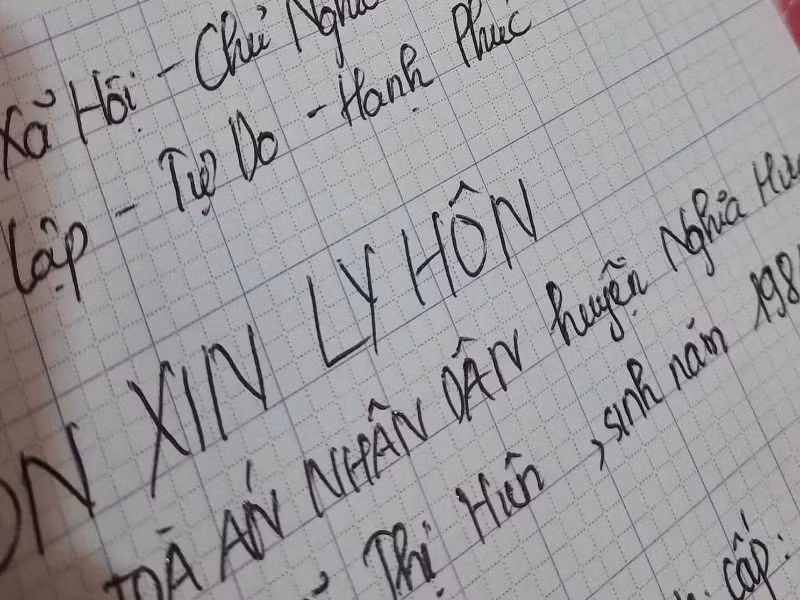 Xã Hội - Chủ Nghĩa
Lập - Tự Do - Hạnh Phúc
ĐƠN XIN LY HÔN
TOÀ ÁN NHÂN DÂN huyện Nghĩa
Thị Hiên, sinh năm 198
cấp: